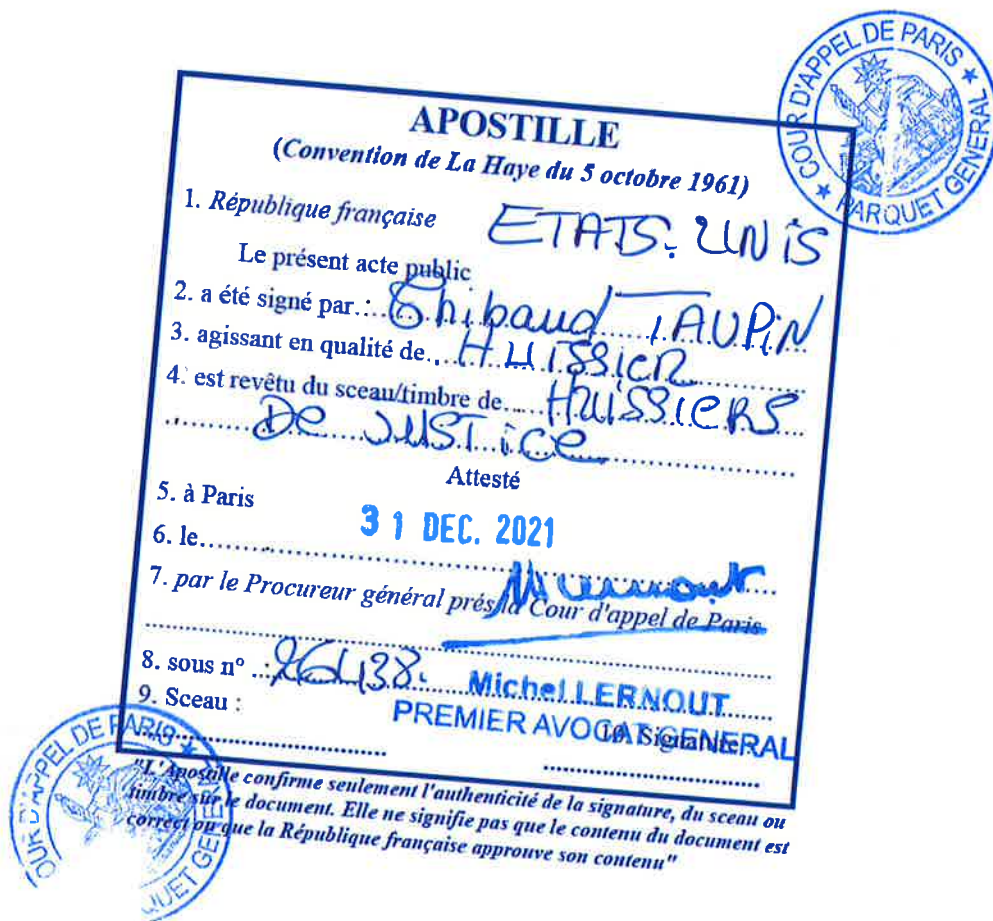 COUR D'APPEL DE PARIS ★
PARQUET GENERAL ★
APOSTILLE
(Convention de La Haye du 5 octobre 1961)
1. République française
ETATS. UNIS
Le présent acte public
2. a été signé par : Thibaud TAUPIN
3. agissant en qualité de HUISSIER
4. est revêtu du sceau/timbre de HUISSIERS
DE JUSTICE
Attesté
5. à Paris
31 DEC. 2021
6. le
7. par le Procureur général prés la Cour d'appel de Paris
8. sous n° : 26438.
Michel LERNOUT
9. Sceau :
PREMIER AVOCAT GENERAL
10. Signature
"L'Apostille confirme seulement l'authenticité de la signature, du sceau ou
timbre sur le document. Elle ne signifie pas que le contenu du document est
correct ou que la République française approuve son contenu"
OUR D'APPEL DE PARIS ★
QUET GENER